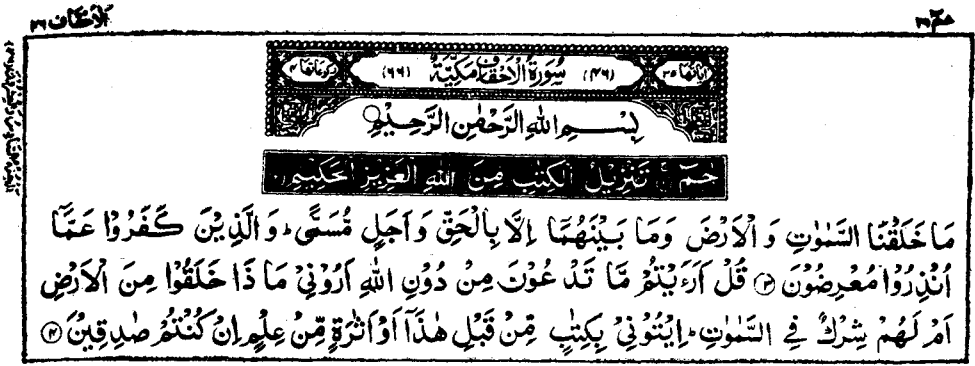 حٰمٓ ٢٦
الاحقاف ٤٦
اٰیاتھا ٣٥ (٤٦) سُوْرَةُ الْاَحْقَافِ مَكِّیَّةٌ (٦٦) رکوعاتھا ٤
بِسْمِ اللهِ الرَّحْمٰنِ الرَّحِیْمِ
حٰمٓ تَنْزِیْلُ الْكِتٰبِ مِنَ اللهِ الْعَزِیْزِ الْحَكِیْمِ
مَا خَلَقْنَا السَّمٰوٰتِ وَ الْاَرْضَ وَمَا بَیْنَهُمَا اِلَّا بِالْحَقِّ وَ اَجَلٍ مُّسَمًّی ؕ وَ الَّذِیْنَ كَفَرُوْا عَمَّاۤ
اُنْذِرُوْا مُعْرِضُوْنَ ﴿٣﴾ قُلْ اَرَءَیْتُمْ مَّا تَدْعُوْنَ مِنْ دُوْنِ اللهِ اَرُوْنِیْ مَا ذَا خَلَقُوْا مِنَ الْاَرْضِ
اَمْ لَهُمْ شِرْكٌ فِی السَّمٰوٰتِ ؕ اِیْتُوْنِیْ بِكِتٰبٍ مِّنْ قَبْلِ هٰذَاۤ اَوْ اَثٰرَةٍ مِّنْ عِلْمٍ اِنْ كُنْتُمْ صٰدِقِیْنَ ﴿٤﴾